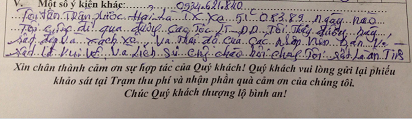 V. Một số ý kiến khác: 0934621840
Tôi tên Trần Quốc Hải là T.X Xe 51C 053.89 ngày nào
Tôi cũng đi qua đường Cao Tốc LT-DD. Tôi thấy đường này
đẹp và sạch sẽ. Và thái độ của các nhân viên
rất là vui vẻ. Và lịch sự chu chào hỏi Tôi rất
Xin chân thành cảm ơn sự hợp tác của Quý khách! Quý khách vui lòng gửi lại phiếu
khảo sát tại Trạm thu phí và nhận phần quà cảm ơn của chúng tôi.
Chúc Quý khách thượng lộ bình an!